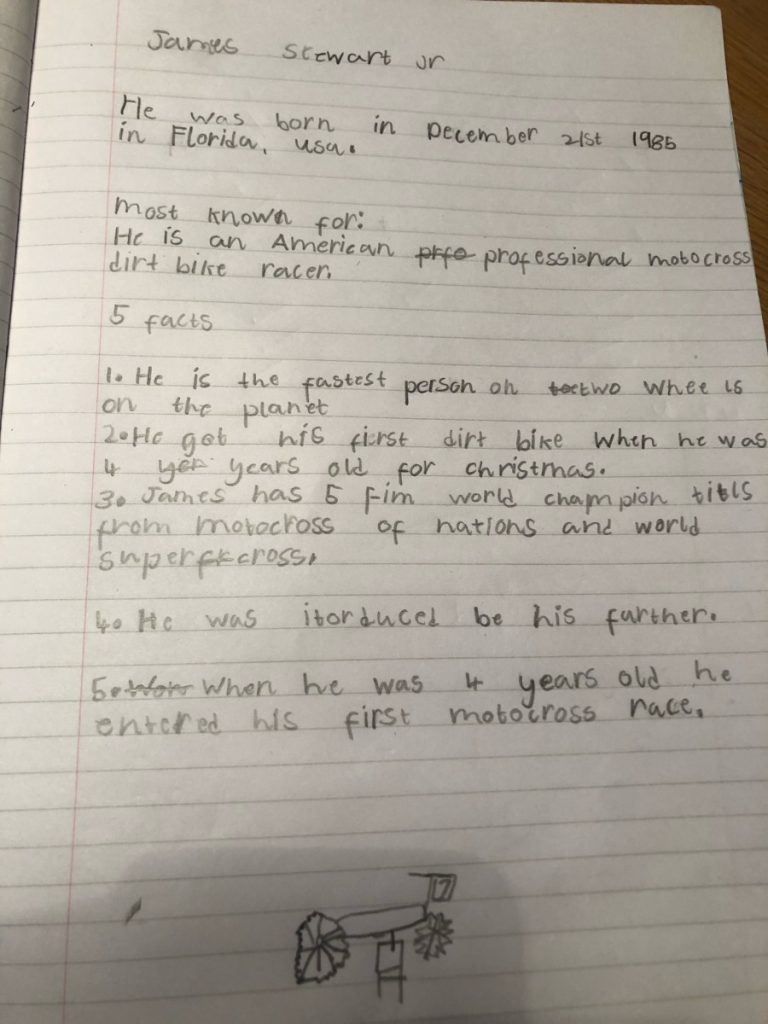 James Stewart Jr
He was born in December 21st 1985
in Florida, usa.
most known for:
He is an American prfo professional motocross
dirt bike racer.
5 facts
1. He is the fastest person on two wheels
on the planet
2. He got his first dirt bike when he was
4 yer years old for christmas.
3. James has 5 Fim world champion titls
from motocross of nations and world
supercross.
4. He was itorduced be his further.
5. When he was 4 years old he
entered his first motocross race.
17